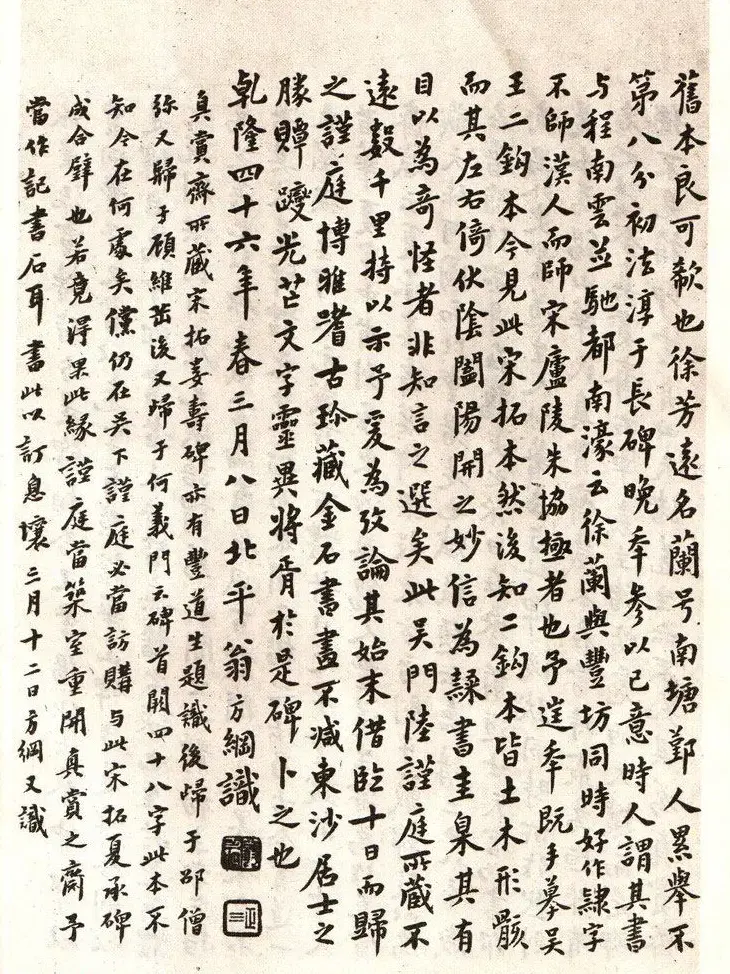 舊本良可欷也徐芳遠名蘭号南塘鄞人累舉不
第八分初法淳于長碑晚秊參以己意時人謂其書
与程南雲並馳都南濠云徐蘭與豐坊同時好作隸字
不師漢人而師宋廬陵朱協極者也予逞秊既手摹吴
王二鉤本今見此宋拓本然後知二鉤本皆土木形骸
而其左右倚伏陰闔陽開之妙信為隸書圭臬其有
目以為奇怪者非知言之選矣此吴門陸謹庭所藏不
遠數千里持以示予爰為攷論其始末借臨十日而歸
之謹庭博雅嗜古珍藏金石書畫不減東沙居士之
賸贉躞光芒文字靈異將胥於是碑卜之也
乾隆四十六年春三月八日北平翁方綱識
真賞齋所藏宋拓婁壽碑亦有豐道生題識後歸于邵僧
弥又歸于顧維嶽後又歸于何義門云碑首闕四十八字此本不
知今在何處矣儻仍在吴下謹庭必當訪購与此宋拓夏承碑
成合璧也若竟得果此緣謹庭當築室重開真賞之齋予
當作記書石耳書此以訂息壤三月十二日方綱又識